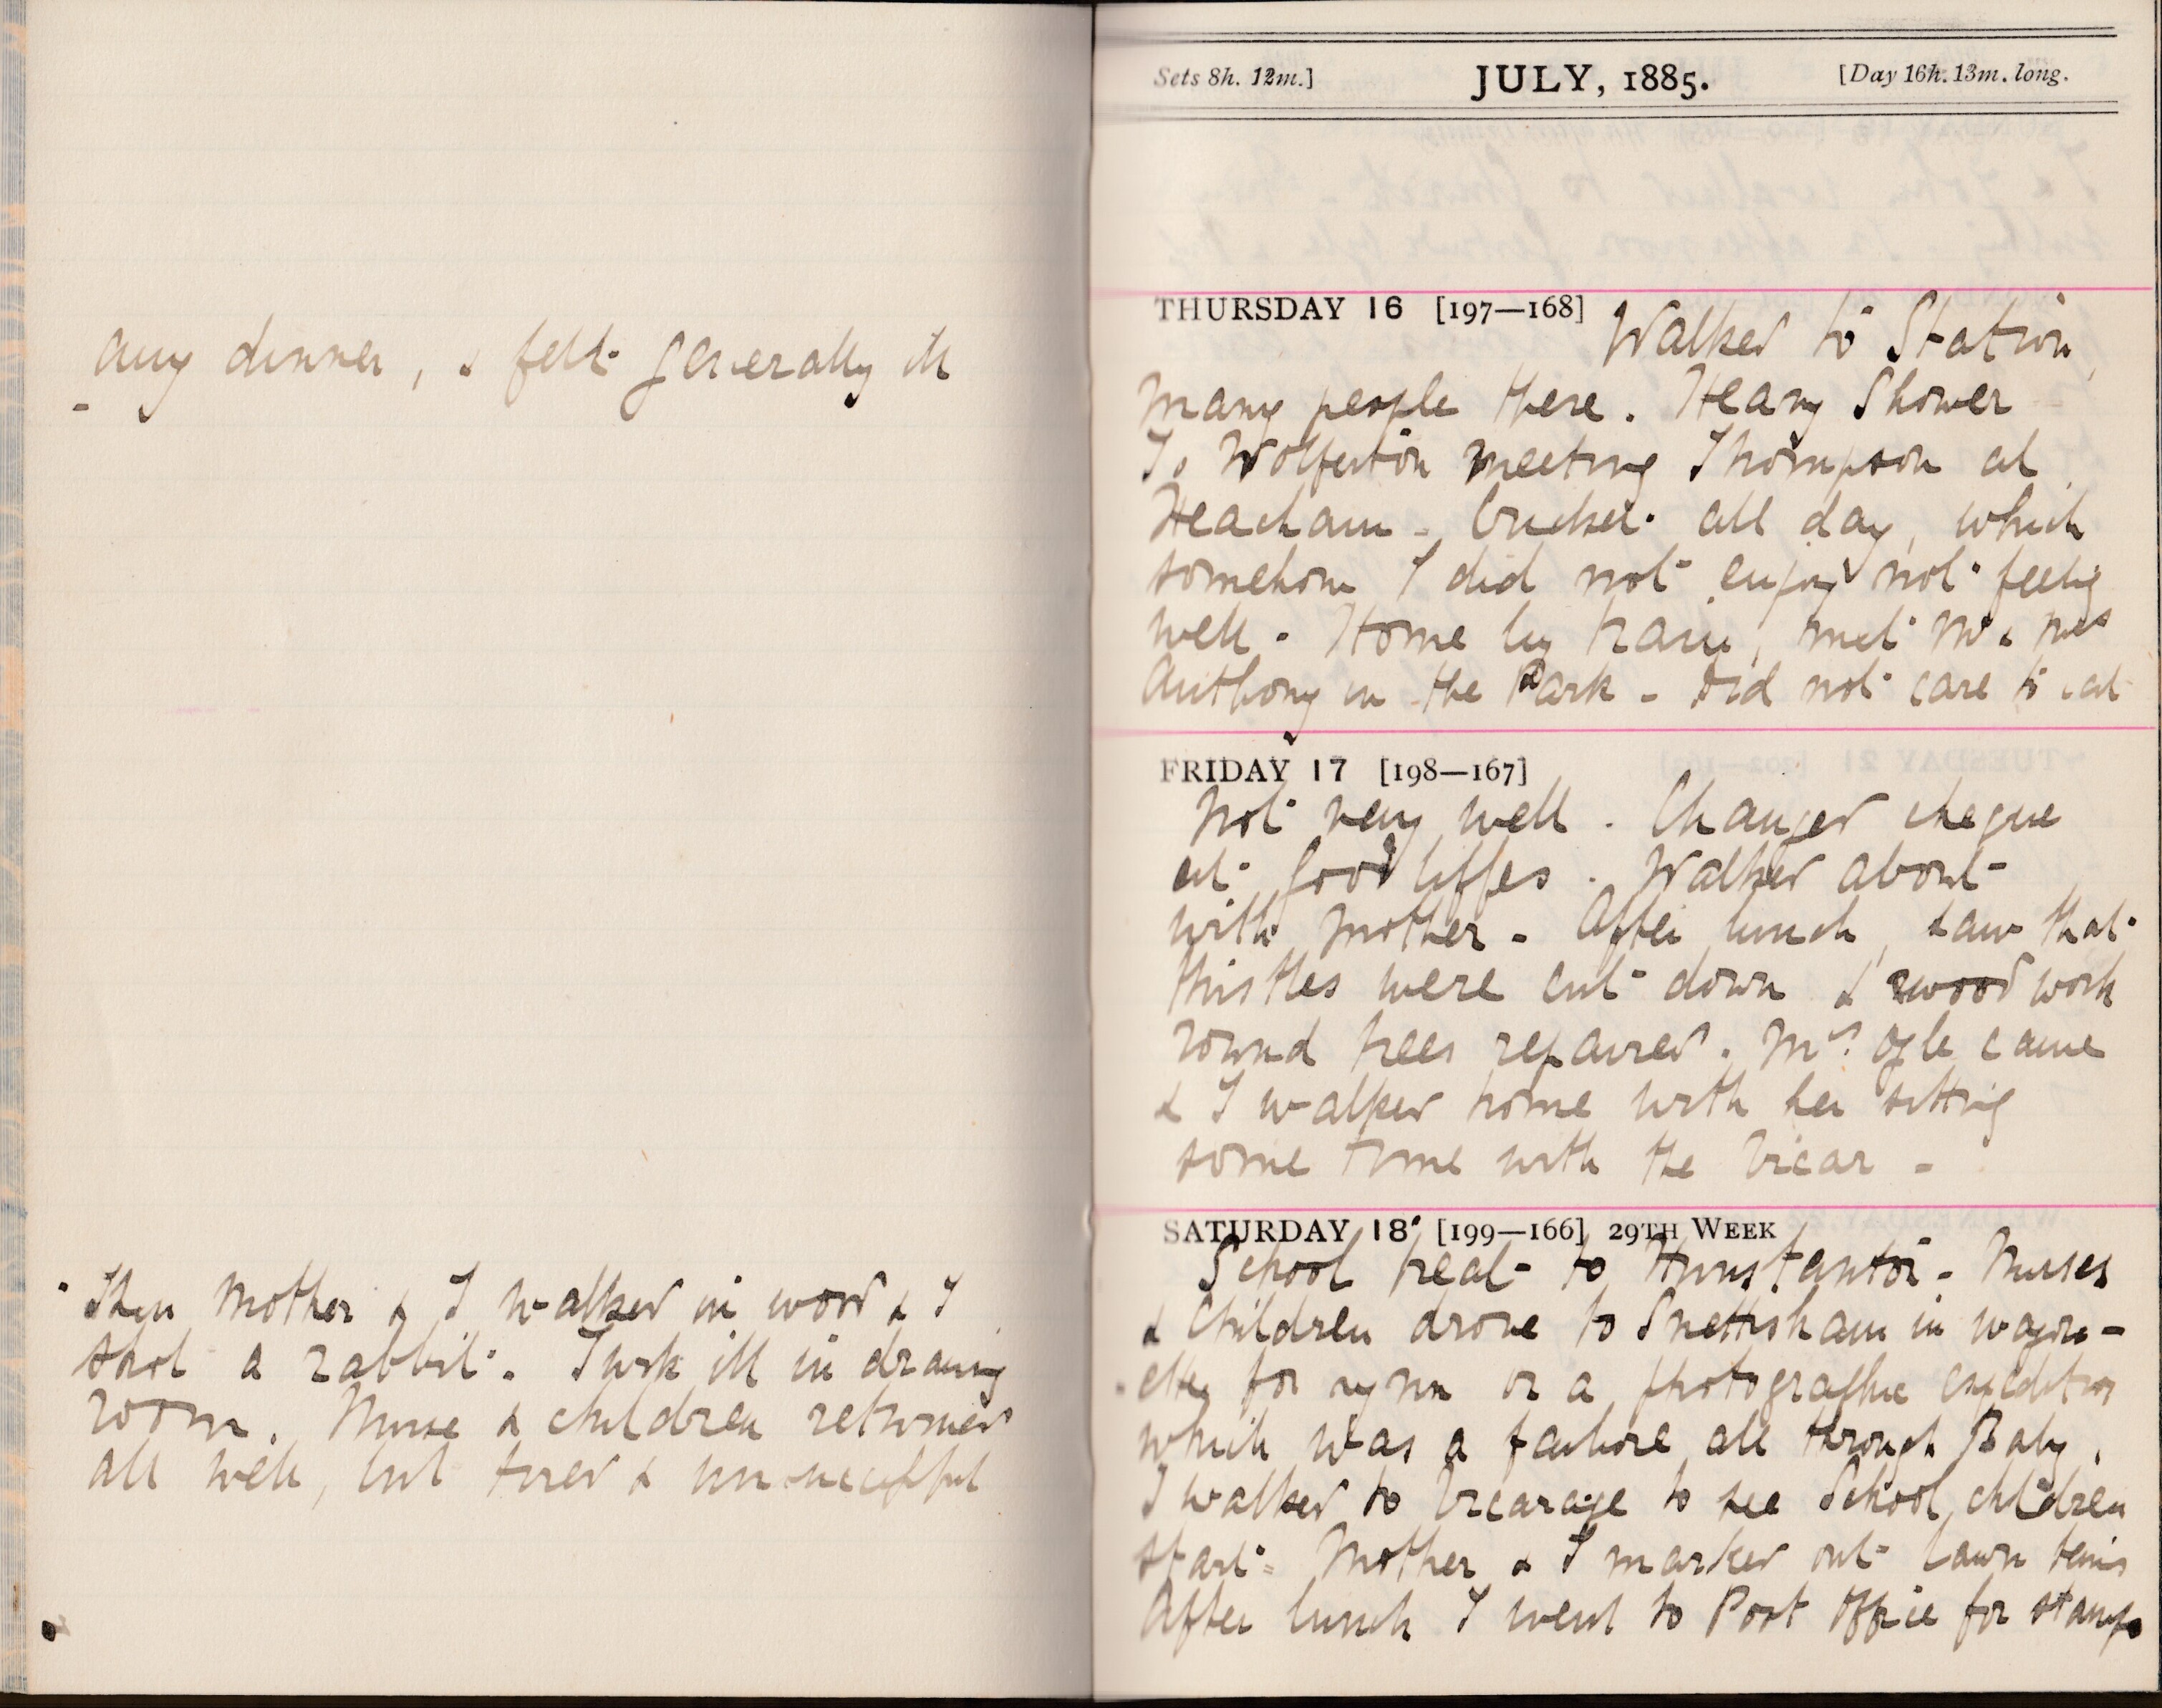 any dinner, & felt generally ill
Then Mother & I walked in wood & I
shot a rabbit. Turk ill in drawing
room. Nurse & children returned
all well, but tired & unsuccessful
Sets 8h. 12m.]
JULY, 1885.
[Day 16h. 13m. long.
THURSDAY 16 [197—168] Walked to Station,
many people there. Heavy Shower
To Wolferton meeting Thompson at
Heacham - Cricket all day, which
somehow I did not enjoy not feeling
well - Home by train, met Mr & Mrs
Anthony in the Park - Did not care to eat
FRIDAY 17 [198—167]
Not very well. Changed cheque
at Goodliffes. Walked about
with Mother - After lunch, saw that
thistles were cut down & wood work
round trees repaired. Mrs. Ogle came
& I walked home with her sitting
some time with the Vicar -
SATURDAY 18 [199—166] 29TH WEEK
School treat to Hunstanton - Nurses
& Children drove to Snettisham in wagon-
ette for on a photographic expedition
which was a failure all through Baby.
I walked to Vicarage to see School children
start - Mother & I marked out lawn tennis
After lunch I went to Post Office for stamps